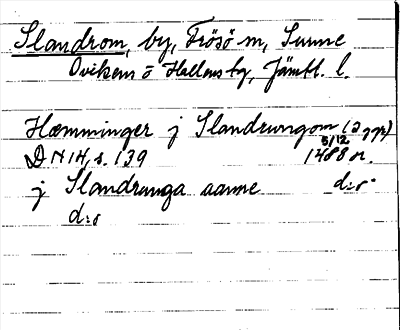 Slandrom, by, Frösö sn, Sunne
Ovikens o Hallens tg, Jämtl. l.
Hæmminger j Slandrungom (2 ggr)
DN 14, s. 139 5/12 1488 or.
j Slandrunga aanne d:o
d:o